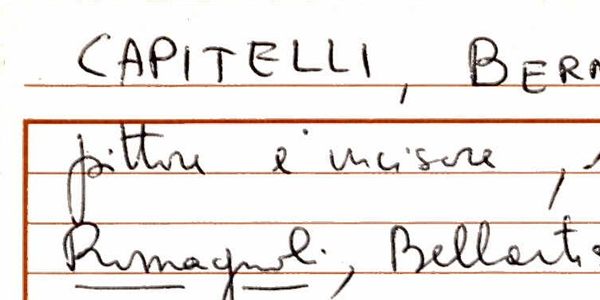 CAPITELLI, BERN
pittore e incisore,
Romagnoli, Bellarti